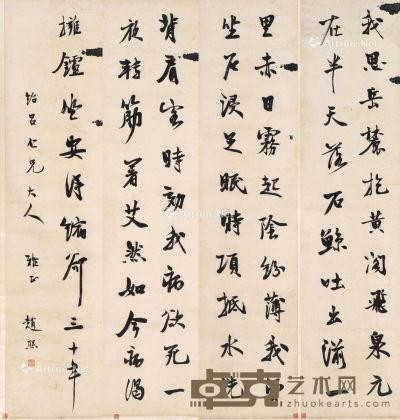 我思岳麓抱黄阁飞泉元
在半天落石鲸吐出湔一
里赤日雾起阴纷薄我
坐石浸足眠时项抵水
背肩坚时劾我病欲死一
夜转筋着艾然如今病渴
拥炉坐安得缩荷三十年
七兄大人
雅正
赵熙
艺术网
zhuokearts.com